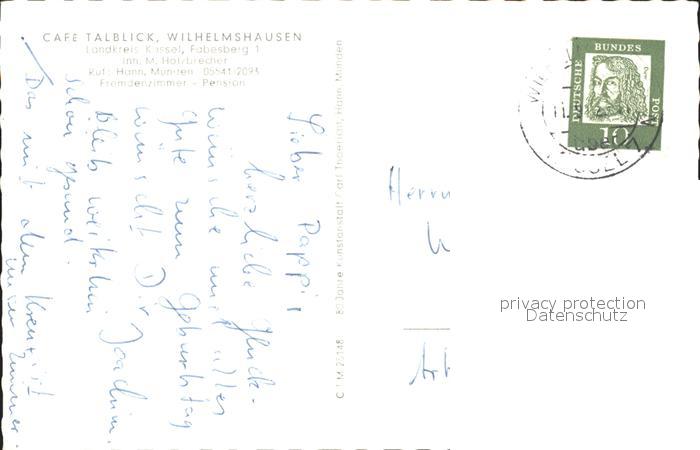 CAFE TALBLICK, WILHELMSHAUSEN
Landkreis Kassel, Fabesberg 1
Inh. M. Holzbrecher
Ruf: Hann. Münden 05541-2093
Fremdenzimmer - Pension
Lieber Pappi
herzliche Glück-
wünsche und alles
Gute zum Geburtstag
wünscht Dir Joachim.
Bleib weiterhin
schön gesund.
Das mit dem Kreuz ist
mein Zimmer.
C 1 M 25148 80 Jahre Kunstanstalt Carl Thoericht, Hann. Münden
Herrn
DEUTSCHE
BUNDES
POST
Dürer
10
privacy protection
Datenschutz